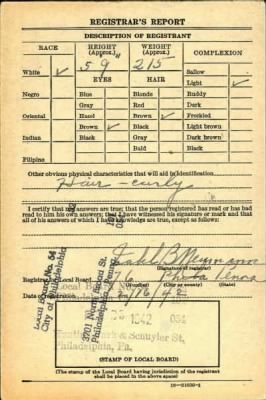 REGISTRAR'S REPORT
DESCRIPTION OF REGISTRANT
RACE HEIGHT (Approx.) WEIGHT (Approx.) COMPLEXION
5 9" 215 Sallow
White ✓ EYES HAIR Light ✓
Negro Blue Blonde Ruddy
Gray Red Dark
Oriental Hazel Brown ✓ Freckled
Brown ✓ Black Light brown
Indian Black Gray Dark brown
Bald Black
Filipino
Other obvious physical characteristics that will aid in identification
Hair - curly
I certify that my answers are true; that the person registered has read or has had
read to him his own answers; that I have witnessed his signature or mark and that
all of his answers of which I have knowledge are true, except as follows:
(Signature of registrar)
Registrar for Local Board 76 Phila Penna
(Number) (City or county) (State)
Date of registration 2/16/42
Local Board No. 54
City of Philadelphia
2701 North Broad St.
Philadelphia, Penna.
1942 054
Philadelphia, Pa.
(STAMP OF LOCAL BOARD)
(The stamp of the Local Board having jurisdiction of the registrant
shall be placed in the above space.)
16-21630-1